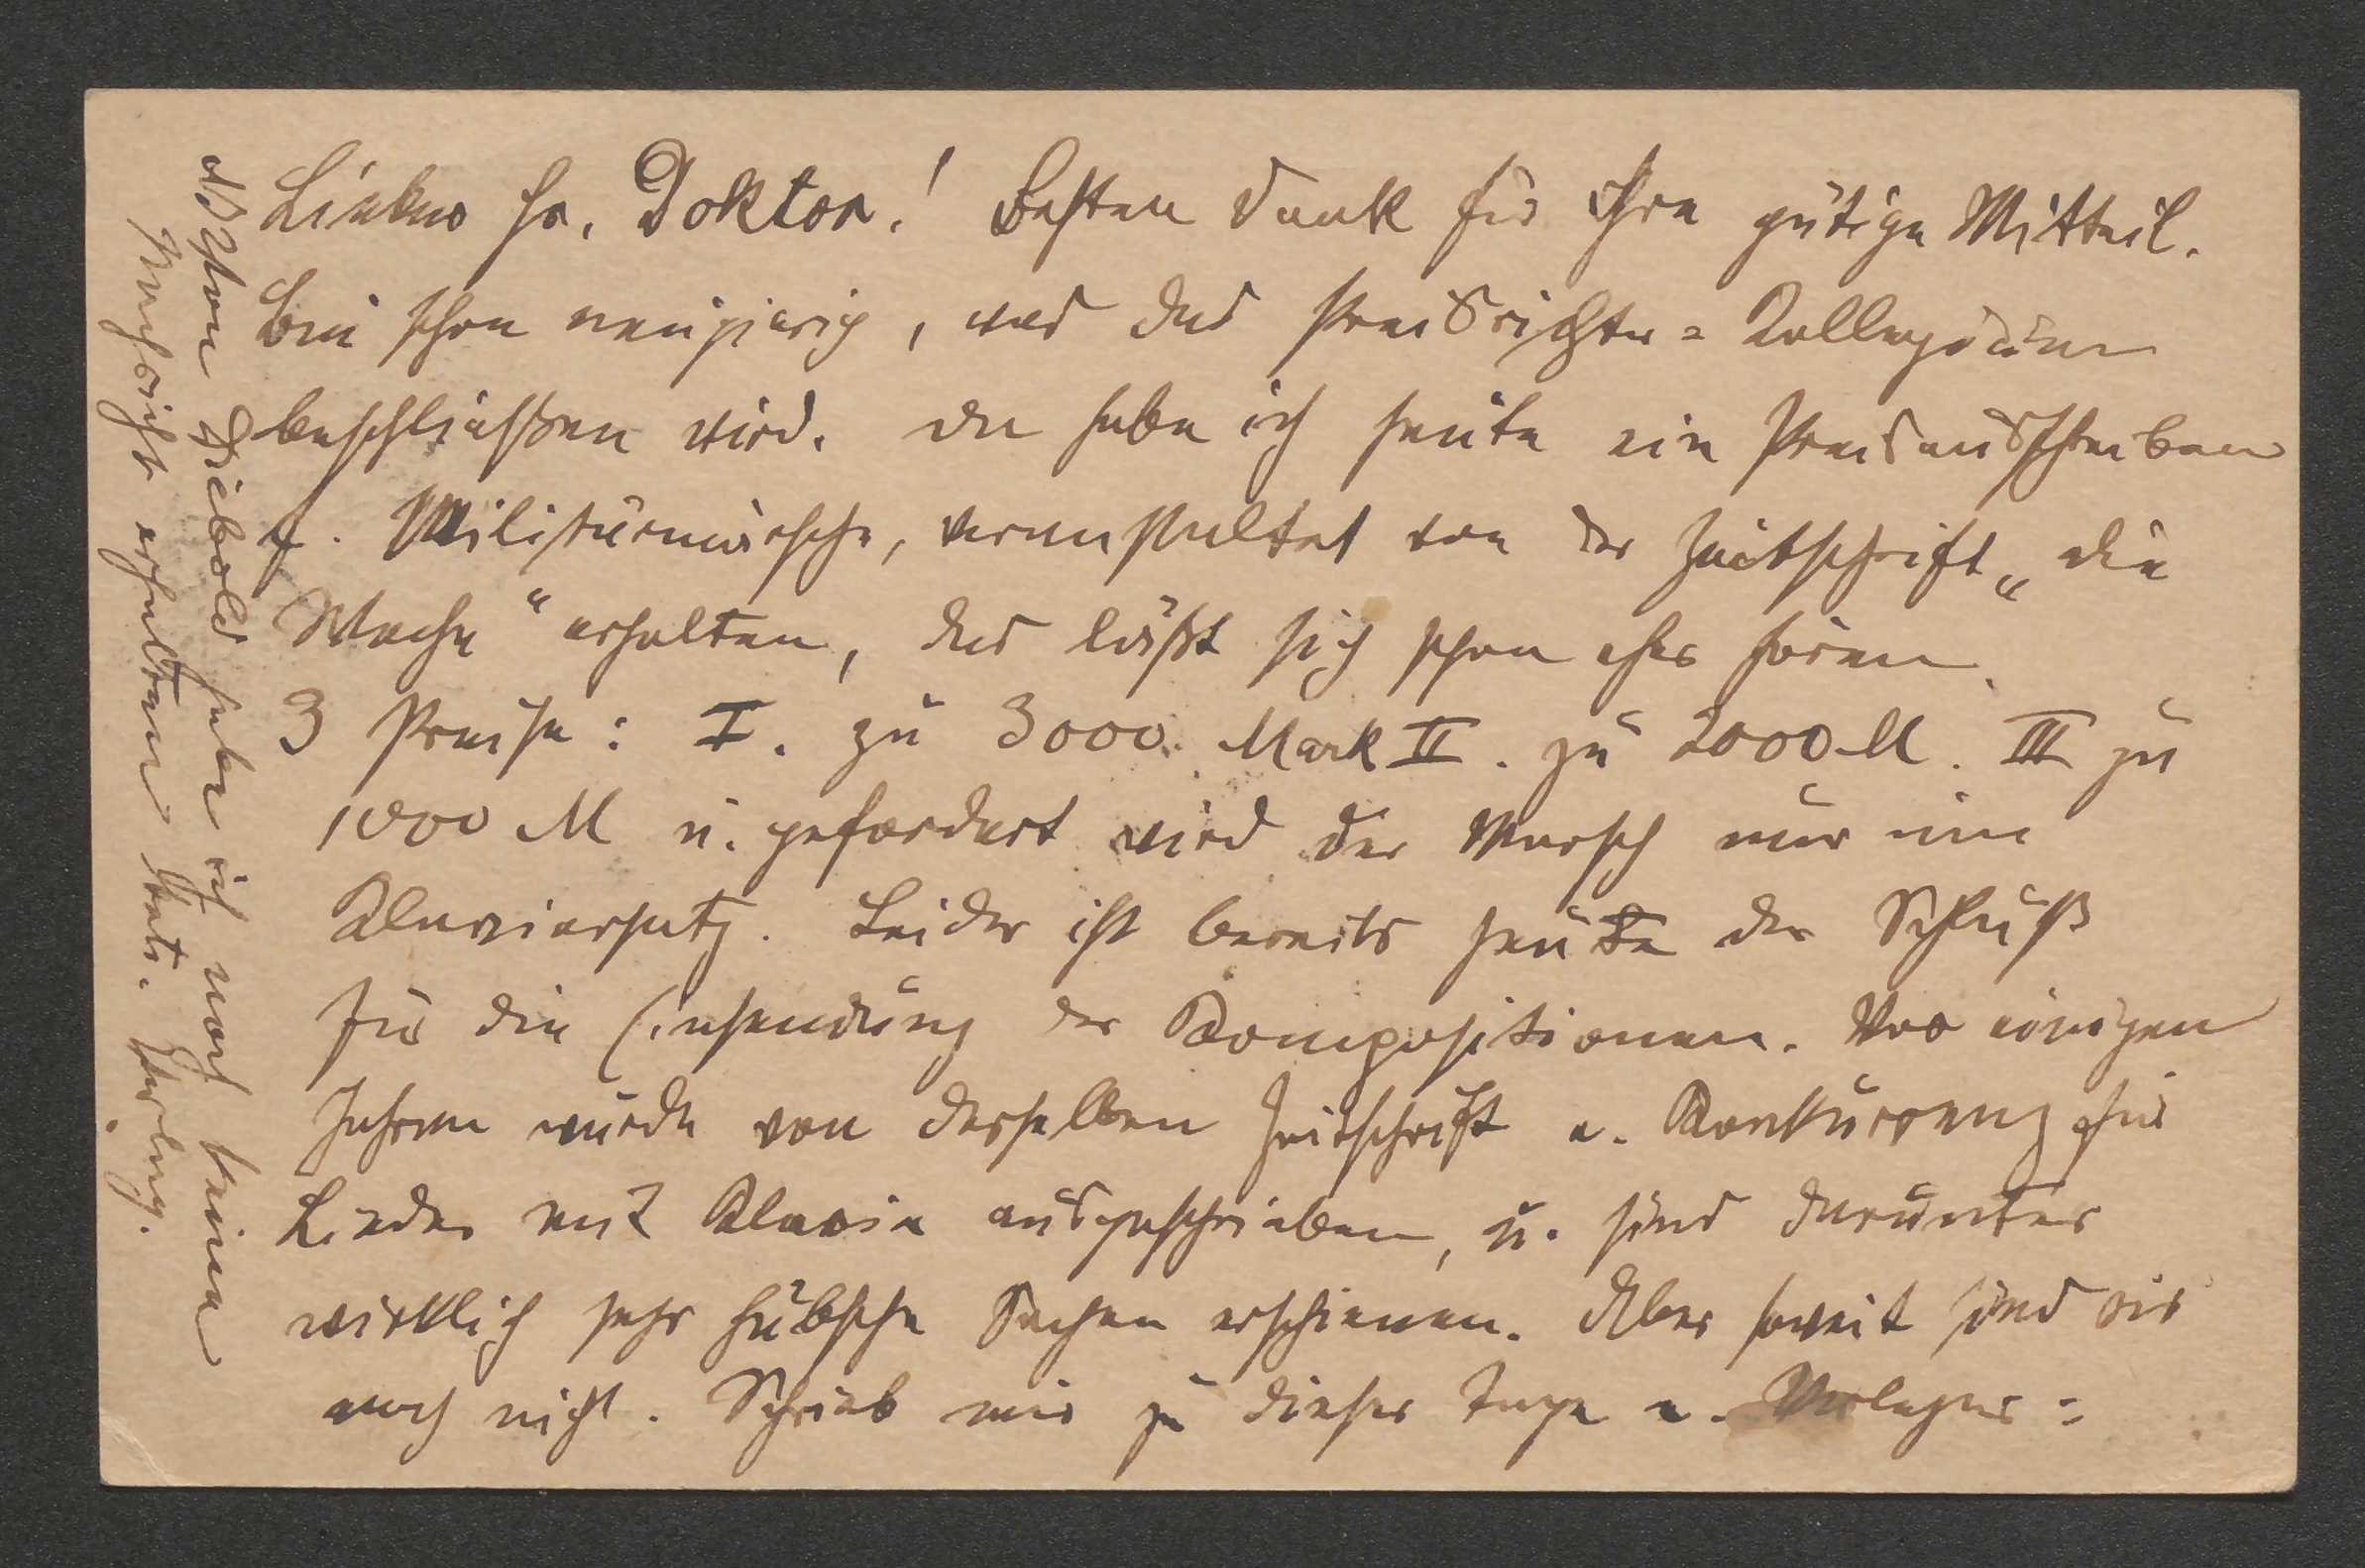 Lieber Hr. Doktor! Besten Dank für Ihre gütige Mitteil.
bin schon neugierig, was das Preisrichter=Kollegium
beschließen wird. Da habe ich heute ein Preisausschreiben
f. Militärmärsche, veranstaltet von der Zeitschrift „die
Woche“ erhalten, das läßt sich schon eher hören.
3 Preise: I. zu 3000 Mark II. zu 2000 M. III zu
1000 M u. gefordert wird der Marsch nur im
Klaviersatz. Leider ist bereits heute der Schluß
für die Einsendung der Kompositionen. Vor einigen
Jahren wurde von derselben Zeitschrift e. Konkurrenz für
Lieder mit Klavier ausgeschrieben, u. sind darunter
wirklich sehr hübsche Sachen erschienen. Aber soweit sind wir
noch nicht. Schrieb mir ja dieser Tage e. Verleger=
NB Von Diebold habe ich noch keine
Nachricht erhalten betr. Verlag.